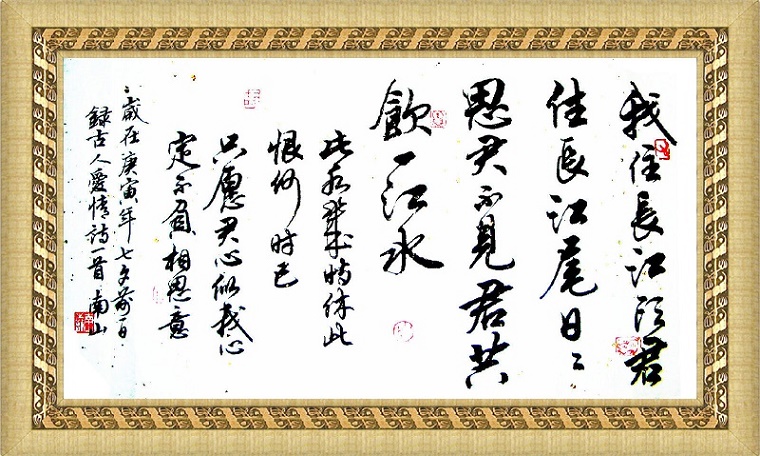 我住長江头君
住長江尾日〻
思君不見君共
飲一江水
此水幾时休此
恨何时已
只愿君心似我心
定不負相思意
歲在庚寅年七夕前一日
録古人愛情詩一首南山